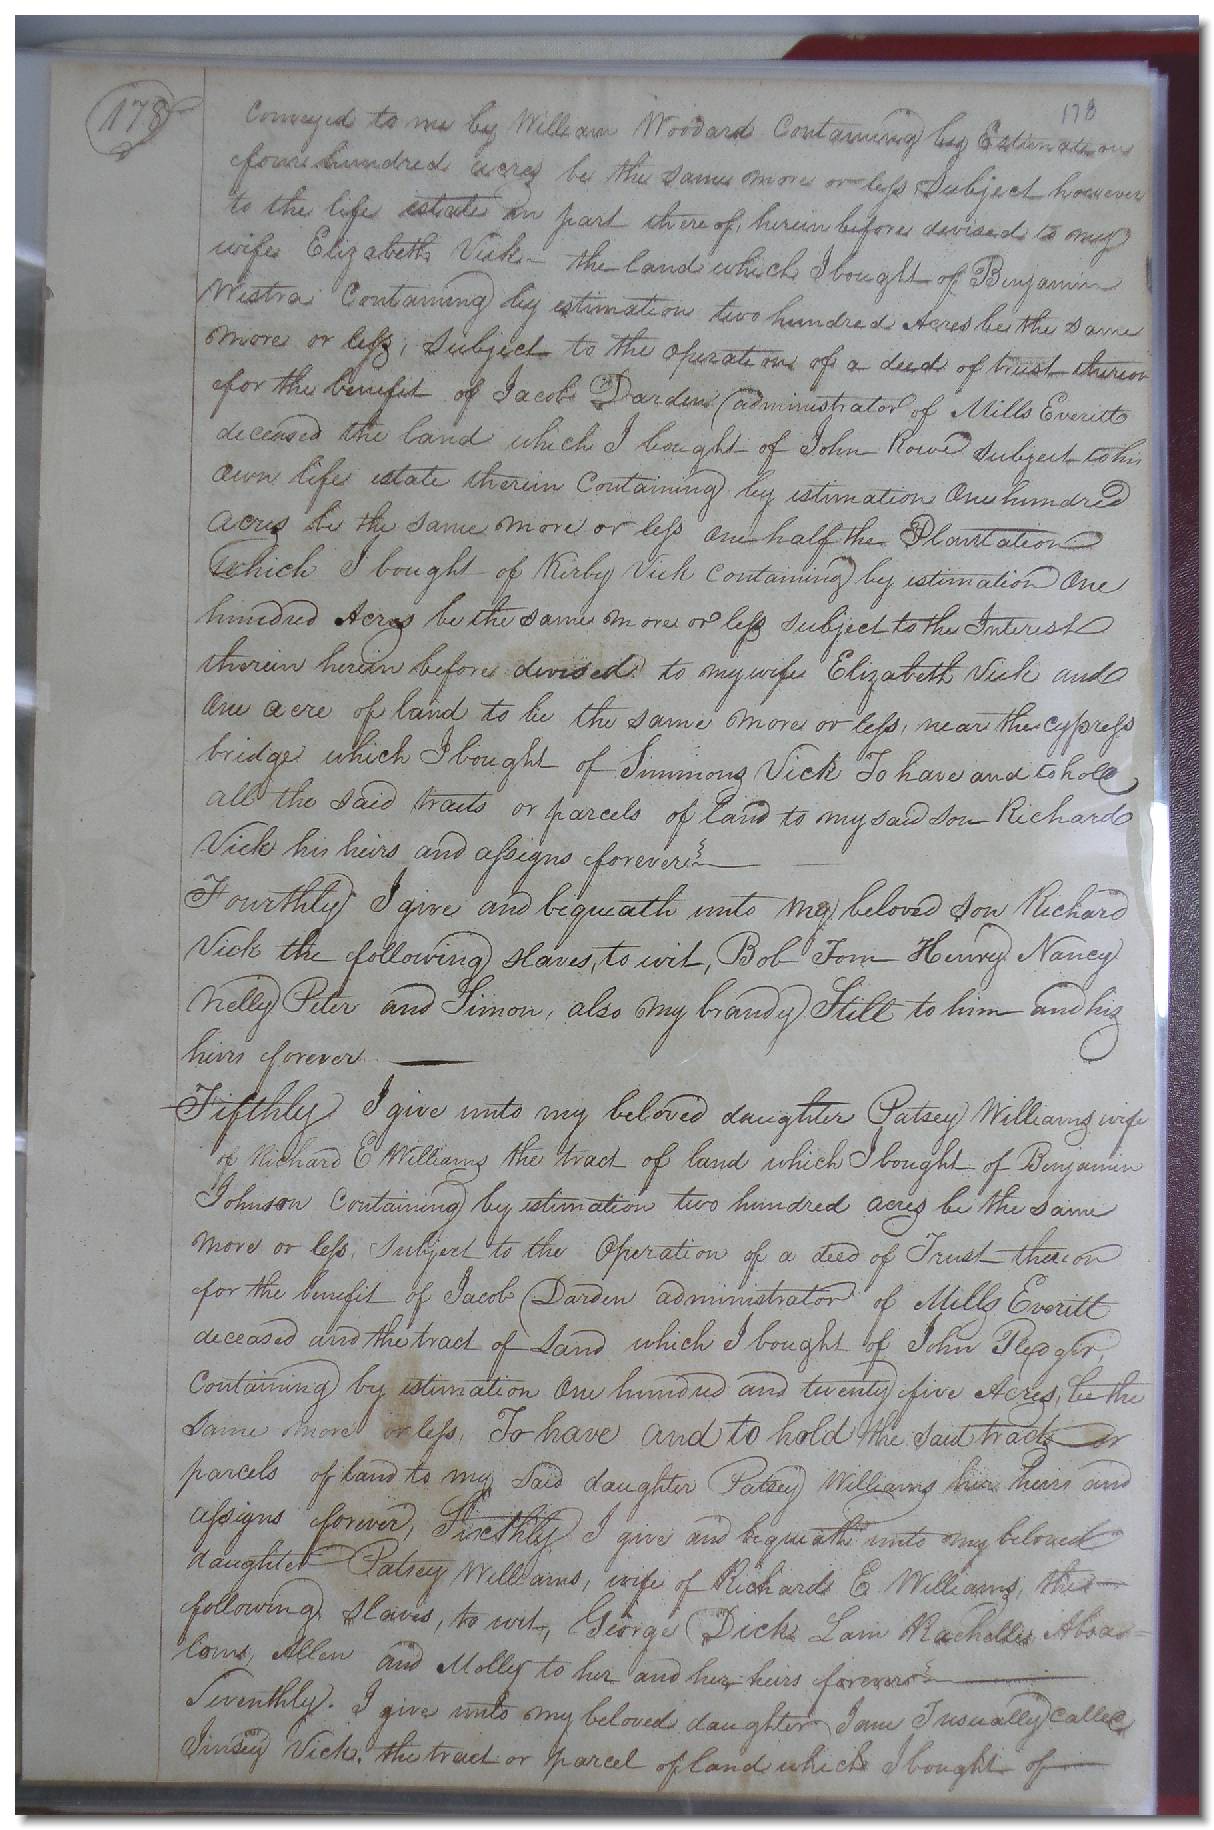 178
178
Conveyed to me by William Woodard Containing by Estimation
four hundred acres be the same more or less, Subject however
to the life estate in part there of, herein before devised to my
wife Elizabeth Vick - the land which I bought of Benjamin
Westra Containing by estimation two hundred Acres be the same
more or less, subject to the operation of a deed of trust thereon
for the benefit of Jacob Darden administrator of Mills Everitt
deceased the land which I bought of John Rowe subject to his
own life estate therein Containing by estimation One hundred
acres be the same more or less one half the Plantation
which I bought of Kirby Vick containing by estimation One
hundred Acres be the same more or less subject to the Interest
therein herein before devised to my wife Elizabeth Vick and
One acre of land to be the same more or less, near the cypress
bridge which I bought of Simmons Vick To have and to hold
all the said tracts or parcels of land to my said son Richard
Vick his heirs and assigns forever
Fourthly I give and bequeath unto my beloved Son Richard
Vick the following slaves, to wit, Bob Tom Henry Nancy
Nelly Peter and Simon, also my brandy Still to him and his
heirs forever
Fifthly I give unto my beloved daughter Patsey Williams wife
of Richard E Williams the tract of land which I bought of Benjamin
Johnson Containing by estimation two hundred acres be the same
more or less, subject to the Operation of a deed of Trust thereon
for the benefit of Jacob Darden administrator of Mills Everitt
deceased and the tract of Land which I bought of John Pledger,
Containing by estimation One hundred and twenty five Acres, be the
same more or less, To have and to hold the said tracts or
parcels of land to my said daughter Patsey Williams her heirs and
assigns forever, Sixthly I give and bequeath unto my beloved
daughter Patsey Williams, wife of Richard E Williams, the
following slaves, to wit, George Dick Sam Rachel Absa=
lom, Allen and Molly to her and her heirs forever
Seventhly. I give unto my beloved daughter Jane T usually called
Jinsey Vick, the tract or parcel of land which I bought of